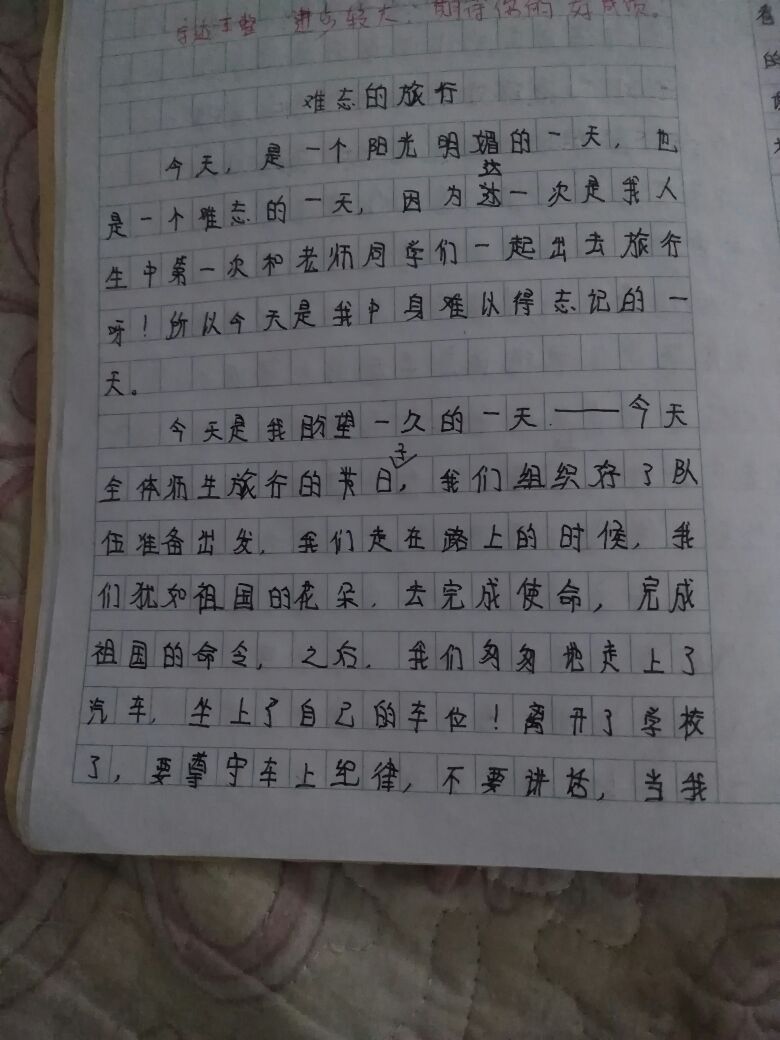 字迹工整 进步较大：期待你的好成绩。
难忘的旅行
今天，是一个阳光明媚的一天，也
是一个难忘的一天，因为这一次是我人
生中第一次和老师同学们一起出去旅行
呀！所以今天是我中身难以得忘记的一
天。
今天是我盼望一久的一天——今天
全体师生旅行的节日子，我们组织好了队
伍准备出发，我们走在路上的时候，我
们犹如祖国的花朵，去完成使命，完成
祖国的命令，之后，我们匆匆地走上了
汽车，坐上了自己的车位！离开了学校
了，要尊守车上纪律，不要讲话，当我
看
的